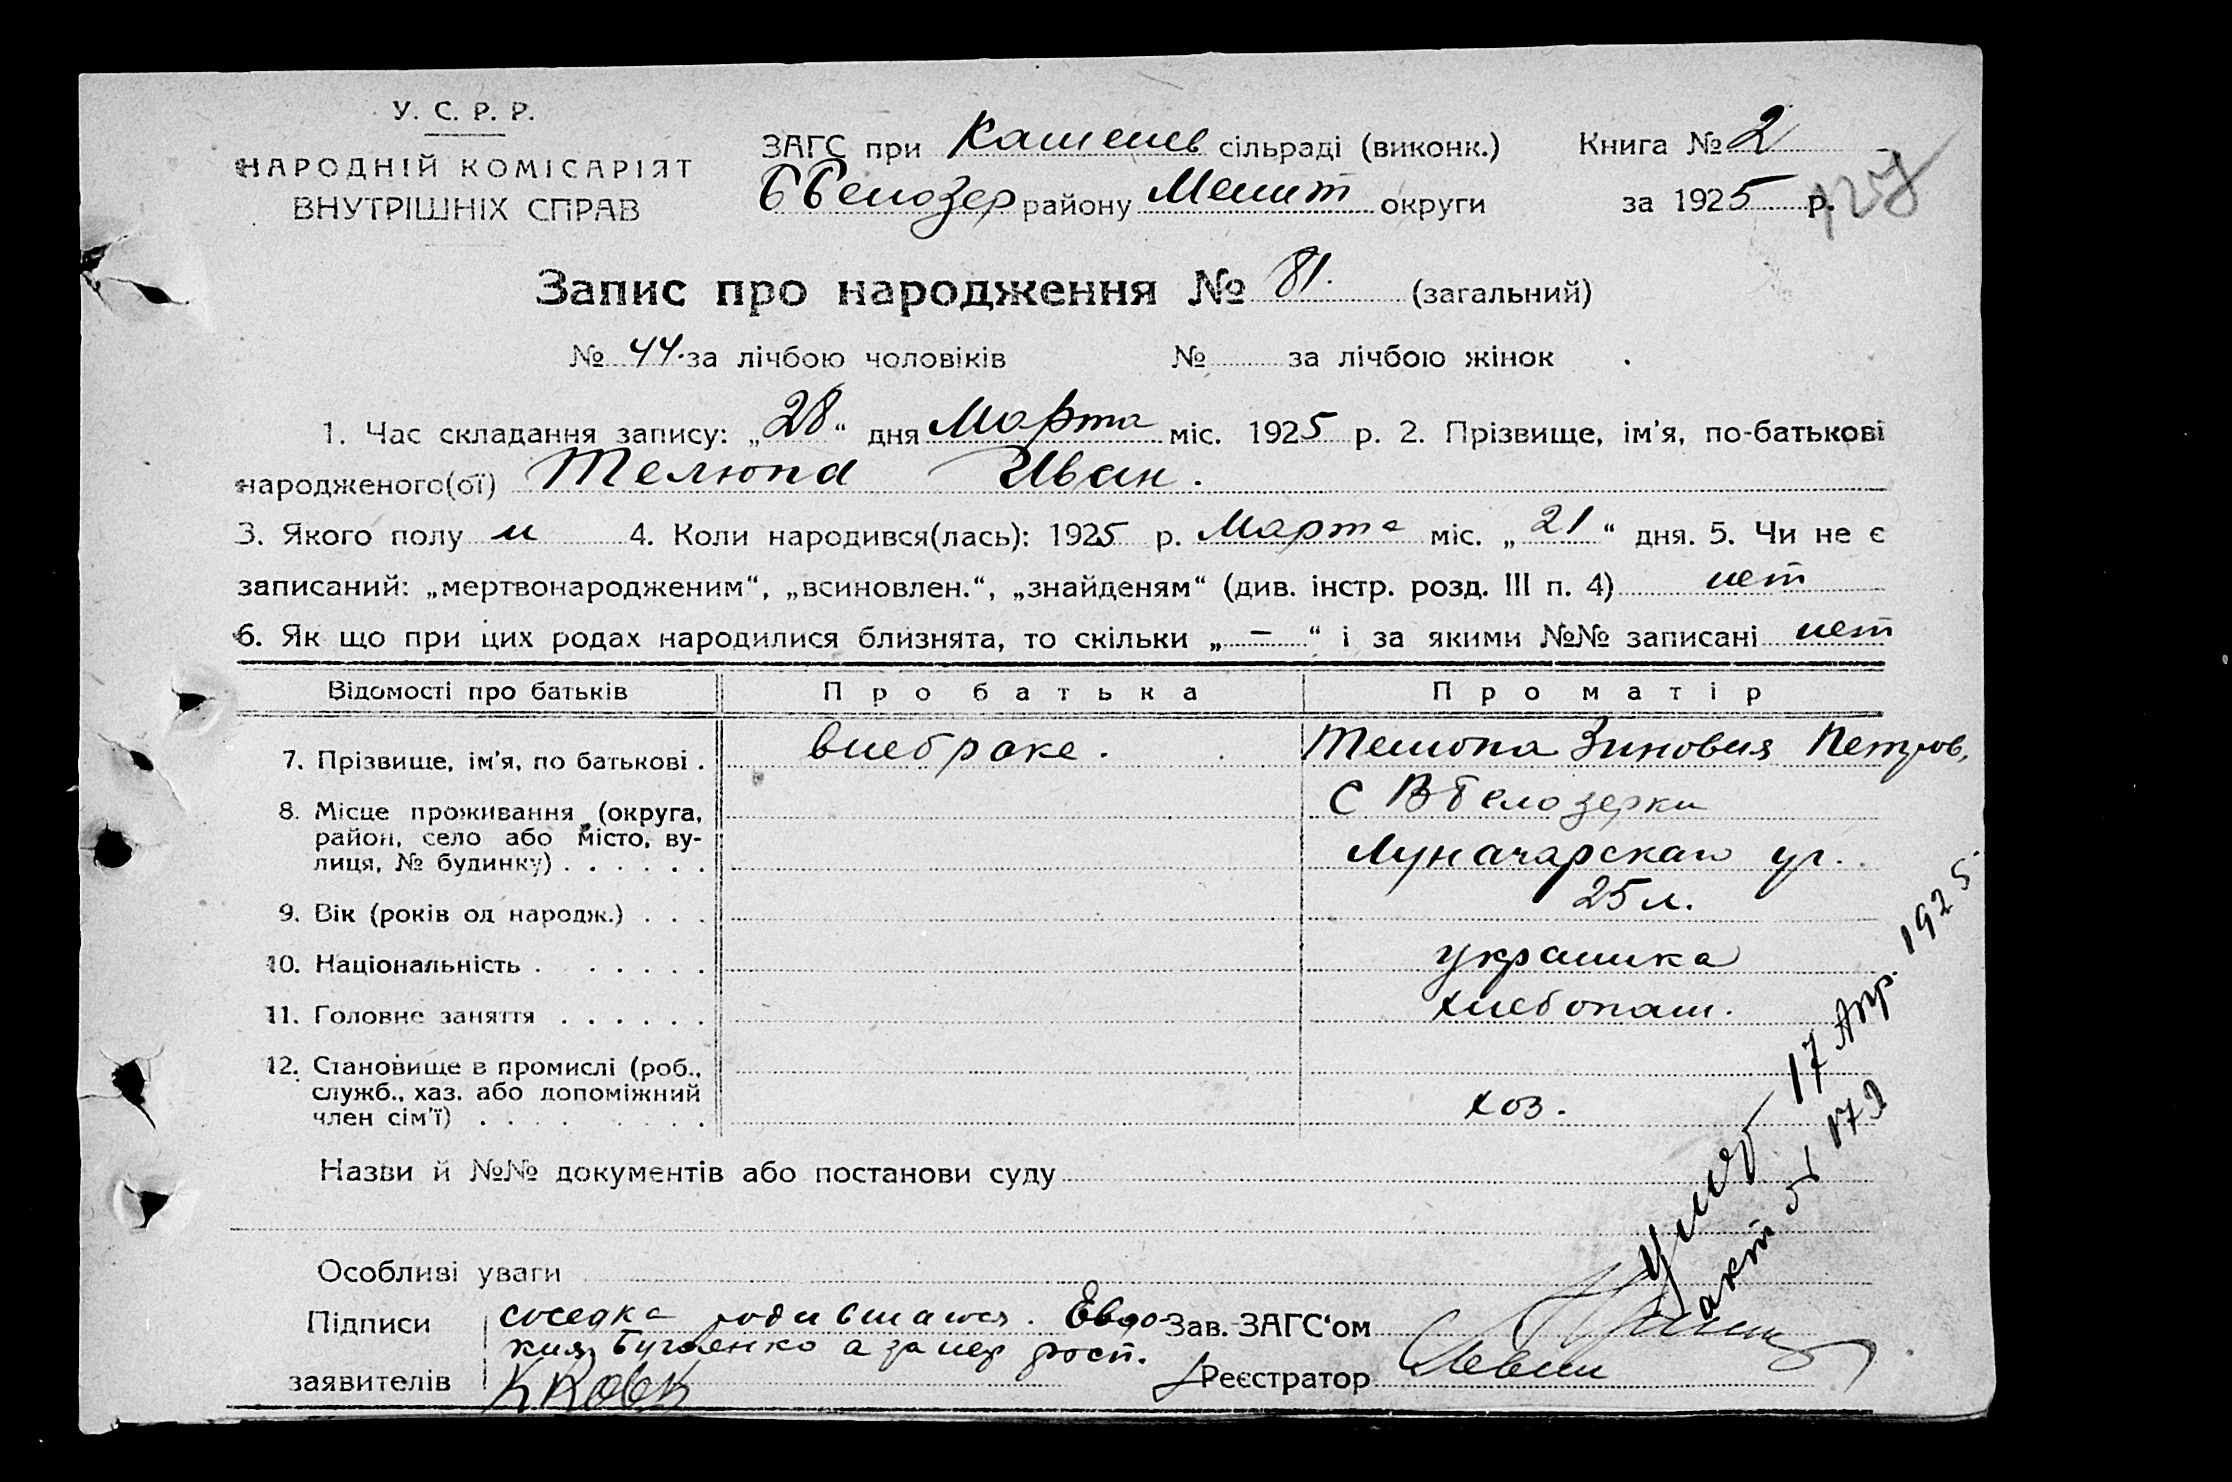 У. С. Р. Р.
НАРОДНІЙ КОМІСАРІЯТ
ВНУТРІШНІХ СПРАВ
ЗАГС при сільраді (виконк.)
району Мелит округи
Книга № 2
за 1925 р.
Запис про народження № 81. (загальний)
№ 44. за лічбою чоловіків № за лічбою жінок
1. Час складання запису: „28“ дня Марта міс. 1925 р. 2. Прізвище, ім'я, по-батькові
народженого(ої) Телюпа Иван.
3. Якого полу м 4. Коли народився(лась): 1925 р. Марта міс. „21“ дня. 5. Чи не є
записаний: „мертвонародженим“, „всиновлен.“, „знайденям“ (див. інстр. розд. III п. 4) нет
6. Як що при цих родах народилися близнята, то скільки „—“ і за якими №№ записані нет
Відомості про батьків Про батька Про матір
7. Прізвище, ім'я, по батькові . внебраке. Телюпа Зиновия Петров,
8. Місце проживання (округа,
район, село або місто, ву-
лиця, № будинку) . . . . . .
С ВБелозерки
Луначарскаго ул.
9. Вік (років од народж.) . . . 25 л.
10. Національність . . . . . . . украинка
11. Головне заняття . . . . . . хлебопаш.
12. Становище в промислі (роб.,
служб., хаз. або допоміжний
член сім'ї) . . . . . . . .
хоз.
Назви й №№ документів або постанови суду
Особливі уваги
Підписи
заявителів
соседка родившаюся. Евдо-
кия а за нер росп.
Зав. ЗАГС‘ом
Реєстратор
17 Апр. 1925
акт